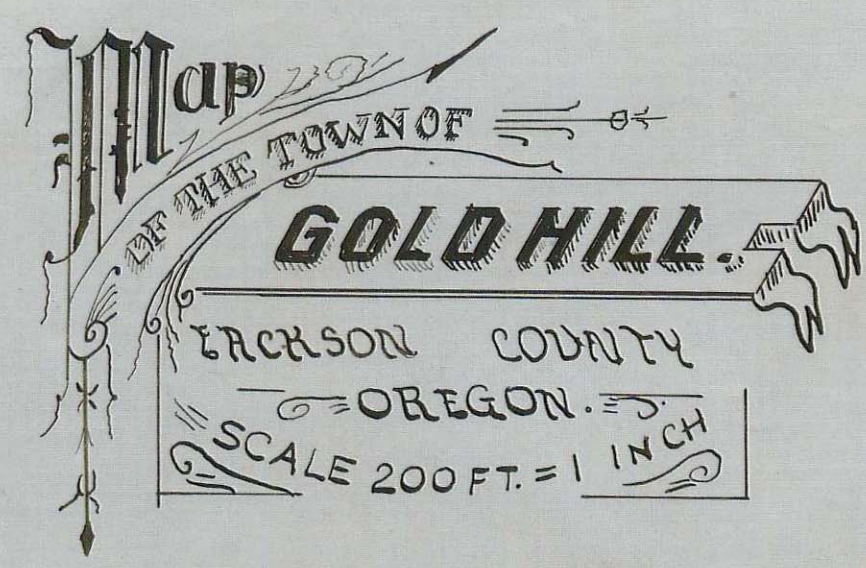 Map
OF THE TOWN OF
GOLD HILL.
JACKSON COUNTY
OREGON.
SCALE 200 FT. = 1 INCH